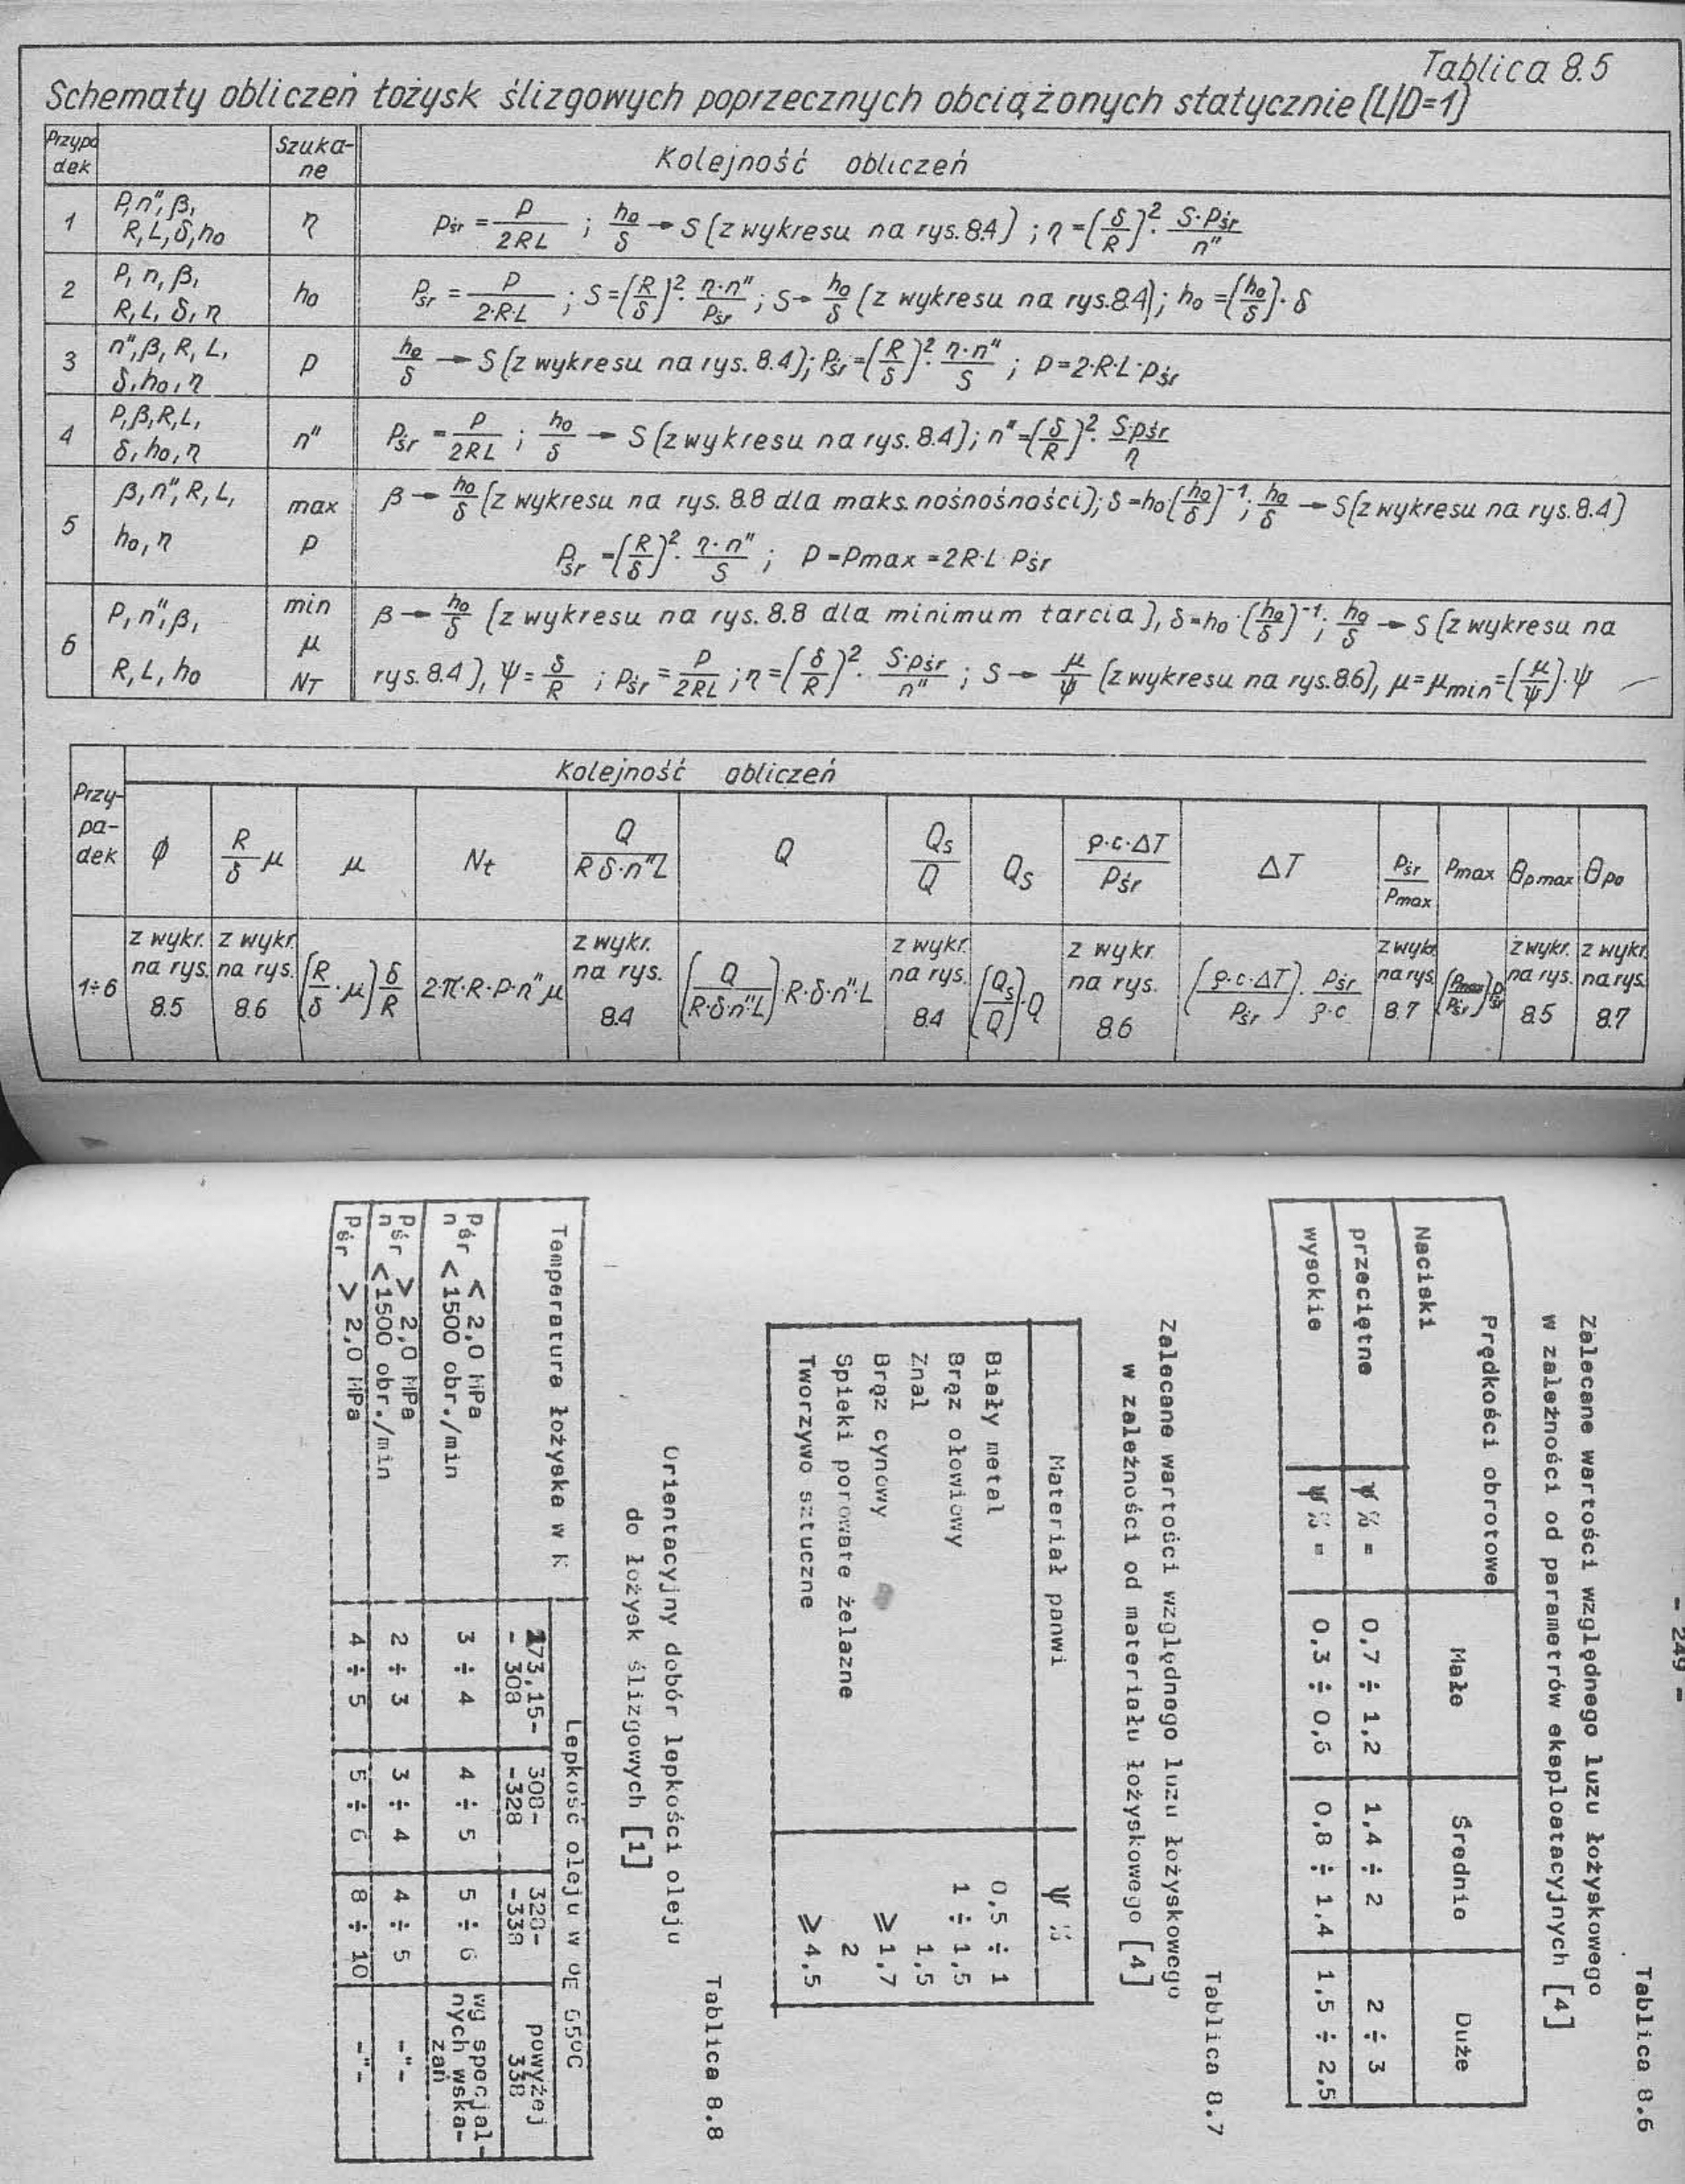 Tablica 8.5
Schematy obliczeń łożysk ślizgowych poprzecznych obciążonych statycznie (L/D=1)
Przypadek Szukane Kolejność obliczeń
1 P, n", β, R, L, δ, h₀ η pśr = P/2RL ; h₀/δ → S (z wykresu na rys. 8.4) ; η = (δ/R)² · S·pśr/n"
2 P, n, β, R, L, δ, η h₀ pśr = P/2·R·L ; S = (R/δ)² · η·n"/pśr ; S → h₀/δ (z wykresu na rys. 8.4) ; h₀ = (h₀/δ) · δ
3 n", β, R, L, δ, h₀, η P h₀/δ → S (z wykresu na rys. 8.4) ; pśr = (R/δ)² · η·n"/S ; P = 2·R·L·pśr
4 P, β, R, L, δ, h₀, η n" pśr = P/2RL ; h₀/δ → S (z wykresu na rys. 8.4) ; n" = (δ/R)² · S·pśr/η
5 β, n", R, L, h₀, η max P β → h₀/δ (z wykresu na rys. 8.8 dla maks. nośności) ; δ = h₀(h₀/δ)⁻¹ ; h₀/δ → S (z wykresu na rys. 8.4)
pśr = (R/δ)² · η·n"/S ; P = Pmax = 2R·L·pśr
6 P, n", β, R, L, h₀ min μ NT β → h₀/δ (z wykresu na rys. 8.8 dla minimum tarcia), δ = h₀·(h₀/δ)⁻¹ ; h₀/δ → S (z wykresu na
rys. 8.4), ψ = δ/R ; pśr = P/2RL ; η = (δ/R)² · S·pśr/n" ; S → μ/ψ (z wykresu na rys. 8.6), μ = μmin = (μ/ψ)·ψ
Przypadek Kolejność obliczeń
ϕ R/δ μ μ Nt Q/Rδ·n"L Q Qs/Q Qs ρ·c·ΔT/pśr ΔT pśr/pmax pmax θp max θp₀
1÷6
z wykr. na rys. 8.5
z wykr. na rys. 8.6
(R/δ·μ) δ/R
2π·R·P·n"μ
z wykr. na rys. 8.4
(Q/R·δ·n"L)·R·δ·n"·L
z wykr. na rys. 8.4
(Qs/Q)·Q
z wykr. na rys. 8.6
(ρ·c·ΔT/pśr) · pśr/ρ·c
z wykr. na rys. 8.7
(pmax/pśr) pśr
z wykr. na rys. 8.5
z wykr. na rys. 8.7
- 249 -
Tablica 8.6
Zalecane wartości względnego luzu łożyskowego
w zależności od parametrów eksploatacyjnych [4]
Prędkości obrotowe Małe Średnie Duże
Naciski
przeciętne ψ ‰ = 0,7 ÷ 1,2 1,4 ÷ 2 2 ÷ 3
wysokie ψ ‰ = 0,3 ÷ 0,6 0,8 ÷ 1,4 1,5 ÷ 2,5
Tablica 8.7
Zalecane wartości względnego luzu łożyskowego
w zależności od materiału łożyskowego [4]
Materiał panwi ψ ‰
Biały metal 0,5 ÷ 1
Brąz ołowiowy 1 ÷ 1,5
Znal 1,5
Brąz cynowy ⩾ 1,7
Spieki porowate żelazne 2
Tworzywo sztuczne ⩾ 4,5
Tablica 8.8
Orientacyjny dobór lepkości oleju
do łożysk ślizgowych [1]
Temperatura łożyska w K Lepkość oleju w °E 65°C
273,15- - 308 308- -328 328- -338 powyżej 338
pśr < 2,0 MPa n < 1500 obr./min 3 ÷ 4 4 ÷ 5 5 ÷ 6 wg specjalnych wskazań
pśr > 2,0 MPa n < 1500 obr./min 2 ÷ 3 3 ÷ 4 4 ÷ 5 -"-
pśr > 2,0 MPa 4 ÷ 5 5 ÷ 6 8 ÷ 10 -"-